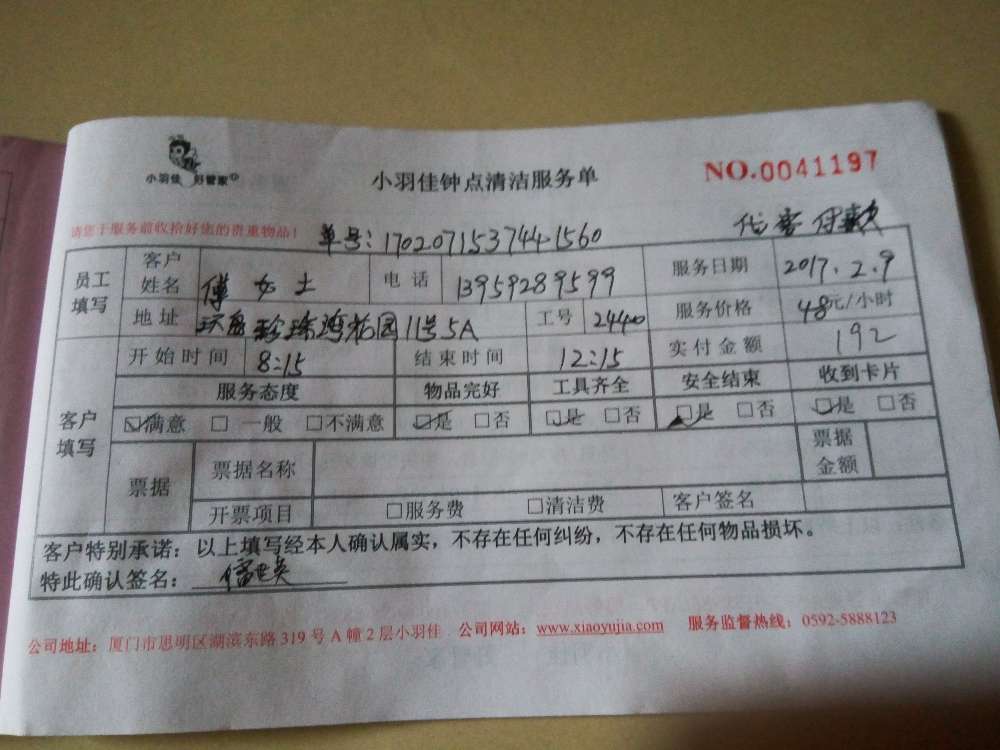 小羽佳 好管家
小羽佳钟点清洁服务单
NO.0041197
请您于服务前收拾好您的贵重物品！
单号：170207153744 1560
代客付款
员工填写 客户姓名 傅女士 电话 13959289599 服务日期 2017.2.9
地址 珍珠湾花园11号5A 工号 2440 服务价格 48元/小时
开始时间 8:15 结束时间 12:15 实付金额 192
客户填写 服务态度 物品完好 工具齐全 安全结束 收到卡片
☑满意 □一般 □不满意 ☑是 □否 ☑是 □否 ☑是 □否 ☑是 □否
票据 票据名称 票据金额
开票项目 □服务费 □清洁费 客户签名
客户特别承诺：以上填写经本人确认属实，不存在任何纠纷，不存在任何物品损坏。
特此确认签名：
公司地址：厦门市思明区湖滨东路319号A幢2层小羽佳 公司网站：www.xiaoyujia.com 服务监督热线：0592-5888123